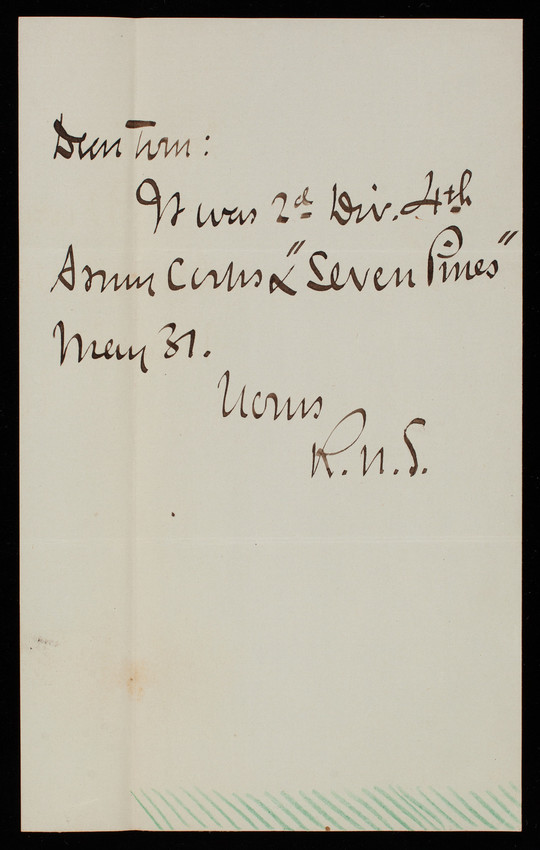 Dear Tom:
It was 2d Div. 4th
Army Corps & "Seven Pines"
May 31.
Yours
R. N. S.